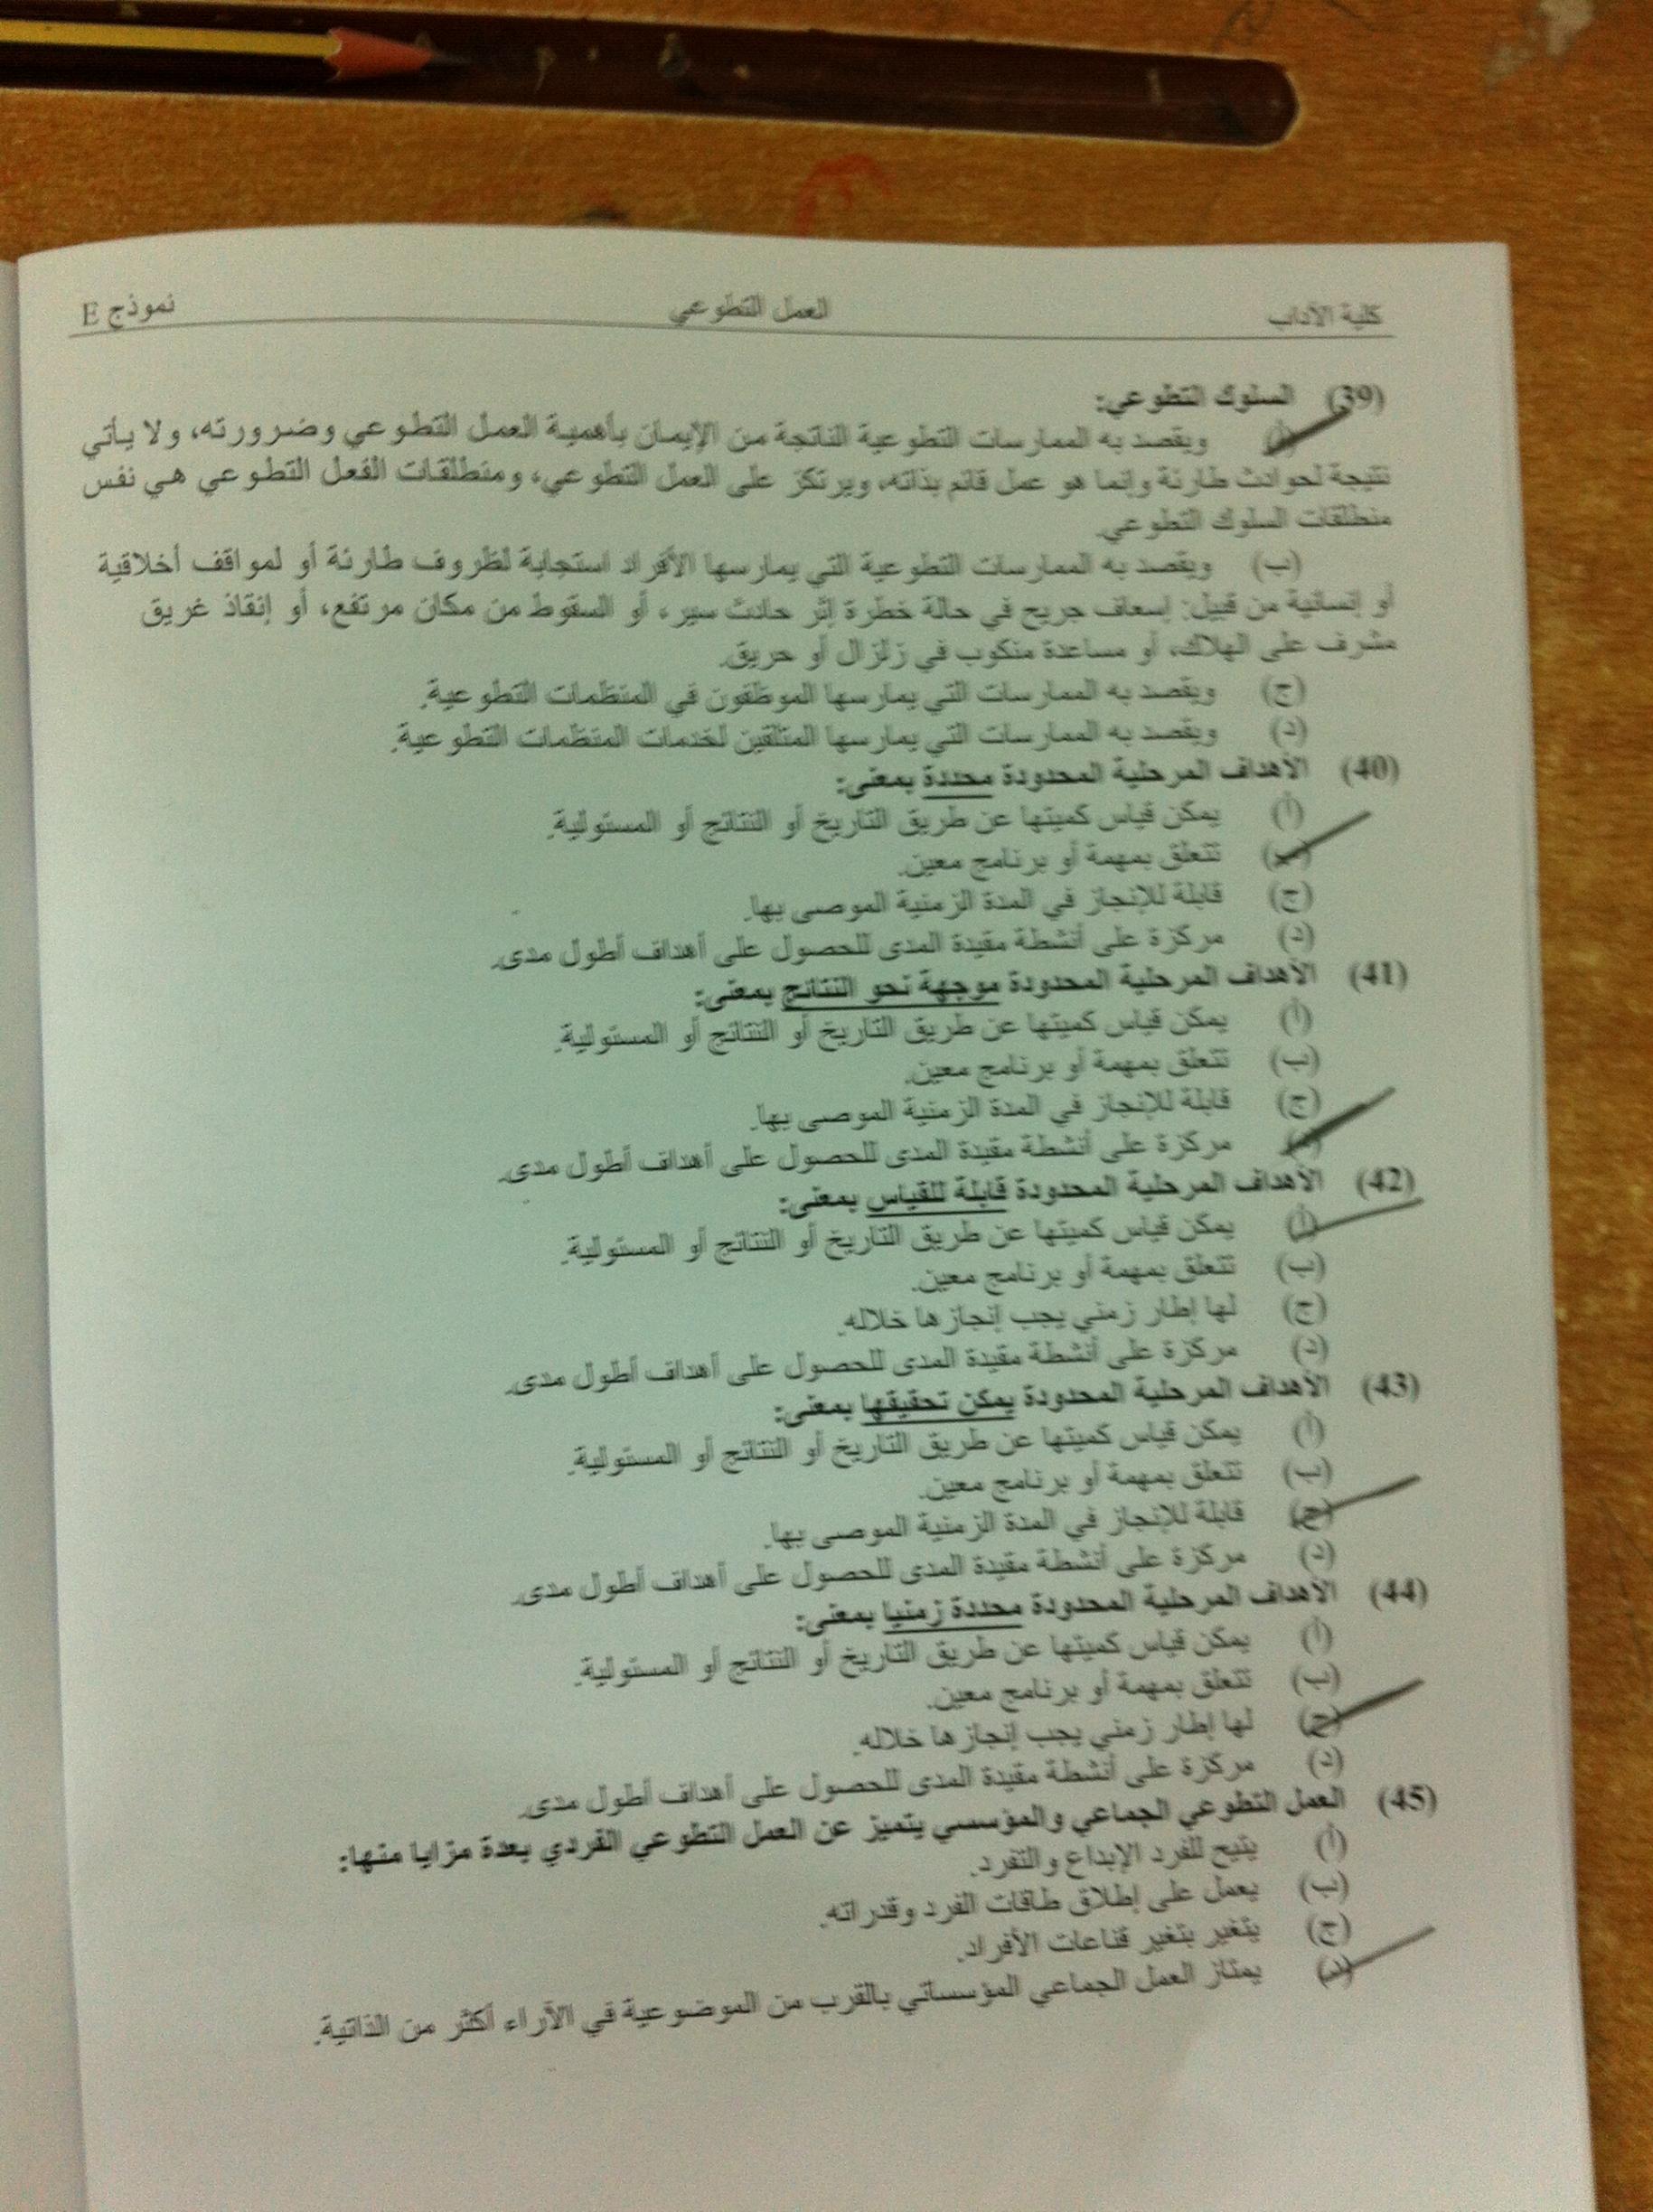 كلية الآداب العمل التطوعي نموذج E
(39) السلوك التطوعي:
(أ) ويقصد به الممارسات التطوعية الناتجة من الإيمان بأهمية العمل التطوعي وضرورته، ولا يأتي
نتيجة لحوادث طارئة وإنما هو عمل قائم بذاته، ويرتكز على العمل التطوعي، ومنطلقات الفعل التطوعي هي نفس
منطلقات السلوك التطوعي.
(ب) ويقصد به الممارسات التطوعية التي يمارسها الأفراد استجابة لظروف طارئة أو لمواقف أخلاقية
أو إنسانية من قبيل: إسعاف جريح في حالة خطرة إثر حادث سير، أو السقوط من مكان مرتفع، أو إنقاذ غريق
مشرف على الهلاك، أو مساعدة منكوب في زلزال أو حريق.
(ج) ويقصد به الممارسات التي يمارسها الموظفون في المنظمات التطوعية.
(د) ويقصد به الممارسات التي يمارسها المتلقين لخدمات المنظمات التطوعية.
(40) الأهداف المرحلية المحدودة محددة بمعنى:
(أ) يمكن قياس كميتها عن طريق التاريخ أو النتائج أو المسئولية.
(ب) تتعلق بمهمة أو برنامج معين.
(ج) قابلة للإنجاز في المدة الزمنية الموصى بها.
(د) مركزة على أنشطة مقيدة المدى للحصول على أهداف أطول مدى.
(41) الأهداف المرحلية المحدودة موجهة نحو النتائج بمعنى:
(أ) يمكن قياس كميتها عن طريق التاريخ أو النتائج أو المسئولية.
(ب) تتعلق بمهمة أو برنامج معين.
(ج) قابلة للإنجاز في المدة الزمنية الموصى بها.
(د) مركزة على أنشطة مقيدة المدى للحصول على أهداف أطول مدى.
(42) الأهداف المرحلية المحدودة قابلة للقياس بمعنى:
(أ) يمكن قياس كميتها عن طريق التاريخ أو النتائج أو المسئولية.
(ب) تتعلق بمهمة أو برنامج معين.
(ج) لها إطار زمني يجب إنجازها خلاله.
(د) مركزة على أنشطة مقيدة المدى للحصول على أهداف أطول مدى.
(43) الأهداف المرحلية المحدودة يمكن تحقيقها بمعنى:
(أ) يمكن قياس كميتها عن طريق التاريخ أو النتائج أو المسئولية.
(ب) تتعلق بمهمة أو برنامج معين.
(ج) قابلة للإنجاز في المدة الزمنية الموصى بها.
(د) مركزة على أنشطة مقيدة المدى للحصول على أهداف أطول مدى.
(44) الأهداف المرحلية المحدودة محددة زمنيا بمعنى:
(أ) يمكن قياس كميتها عن طريق التاريخ أو النتائج أو المسئولية.
(ب) تتعلق بمهمة أو برنامج معين.
(ج) لها إطار زمني يجب إنجازها خلاله.
(د) مركزة على أنشطة مقيدة المدى للحصول على أهداف أطول مدى.
(45) العمل التطوعي الجماعي والمؤسسي يتميز عن العمل التطوعي الفردي بعدة مزايا منها:
(أ) يتيح للفرد الإبداع والتفرد.
(ب) يعمل على إطلاق طاقات الفرد وقدراته.
(ج) يتغير بتغير قناعات الأفراد.
(د) يمتاز العمل الجماعي المؤسساتي بالقرب من الموضوعية في الآراء أكثر من الذاتية.